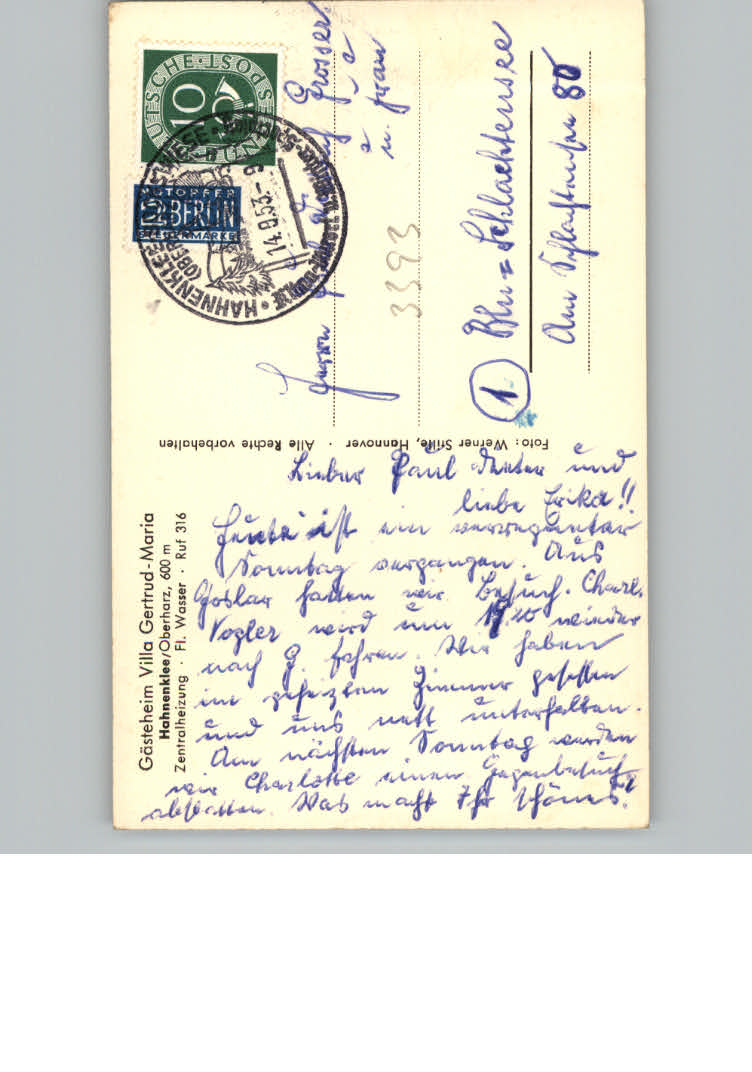 Gästeheim Villa Gertrud-Maria
Hahnenklee/Oberharz, 600 m
Zentralheizung · Fl. Wasser · Ruf 316
Lieber Paul Dieter und
liebe Erika!!
Heute ist ein verregneter
Sonntag vergangen. Aus
Goslar hatten wir Besuch. Charl.
Vogler wird um 19.10 wieder
nach G. fahren. Wir haben
im geheizten Zimmer gesessen
und uns nett unterhalten.
Am nächsten Sonntag werden
wir Charlotte einen Gegenbesuch
abstatten. Was macht Ihr Schönes?
Foto: Werner Stille, Hannover · Alle Rechte vorbehalten
DEUTSCHE·POST
10
NOTOPFER
2 BERLIN
STEUERMARKE
HAHNENKLEE
14.8.53
Herrn
Grosser
u. Frau
3393
1 Bln = Schlachtensee
Am Schlachtensee 80